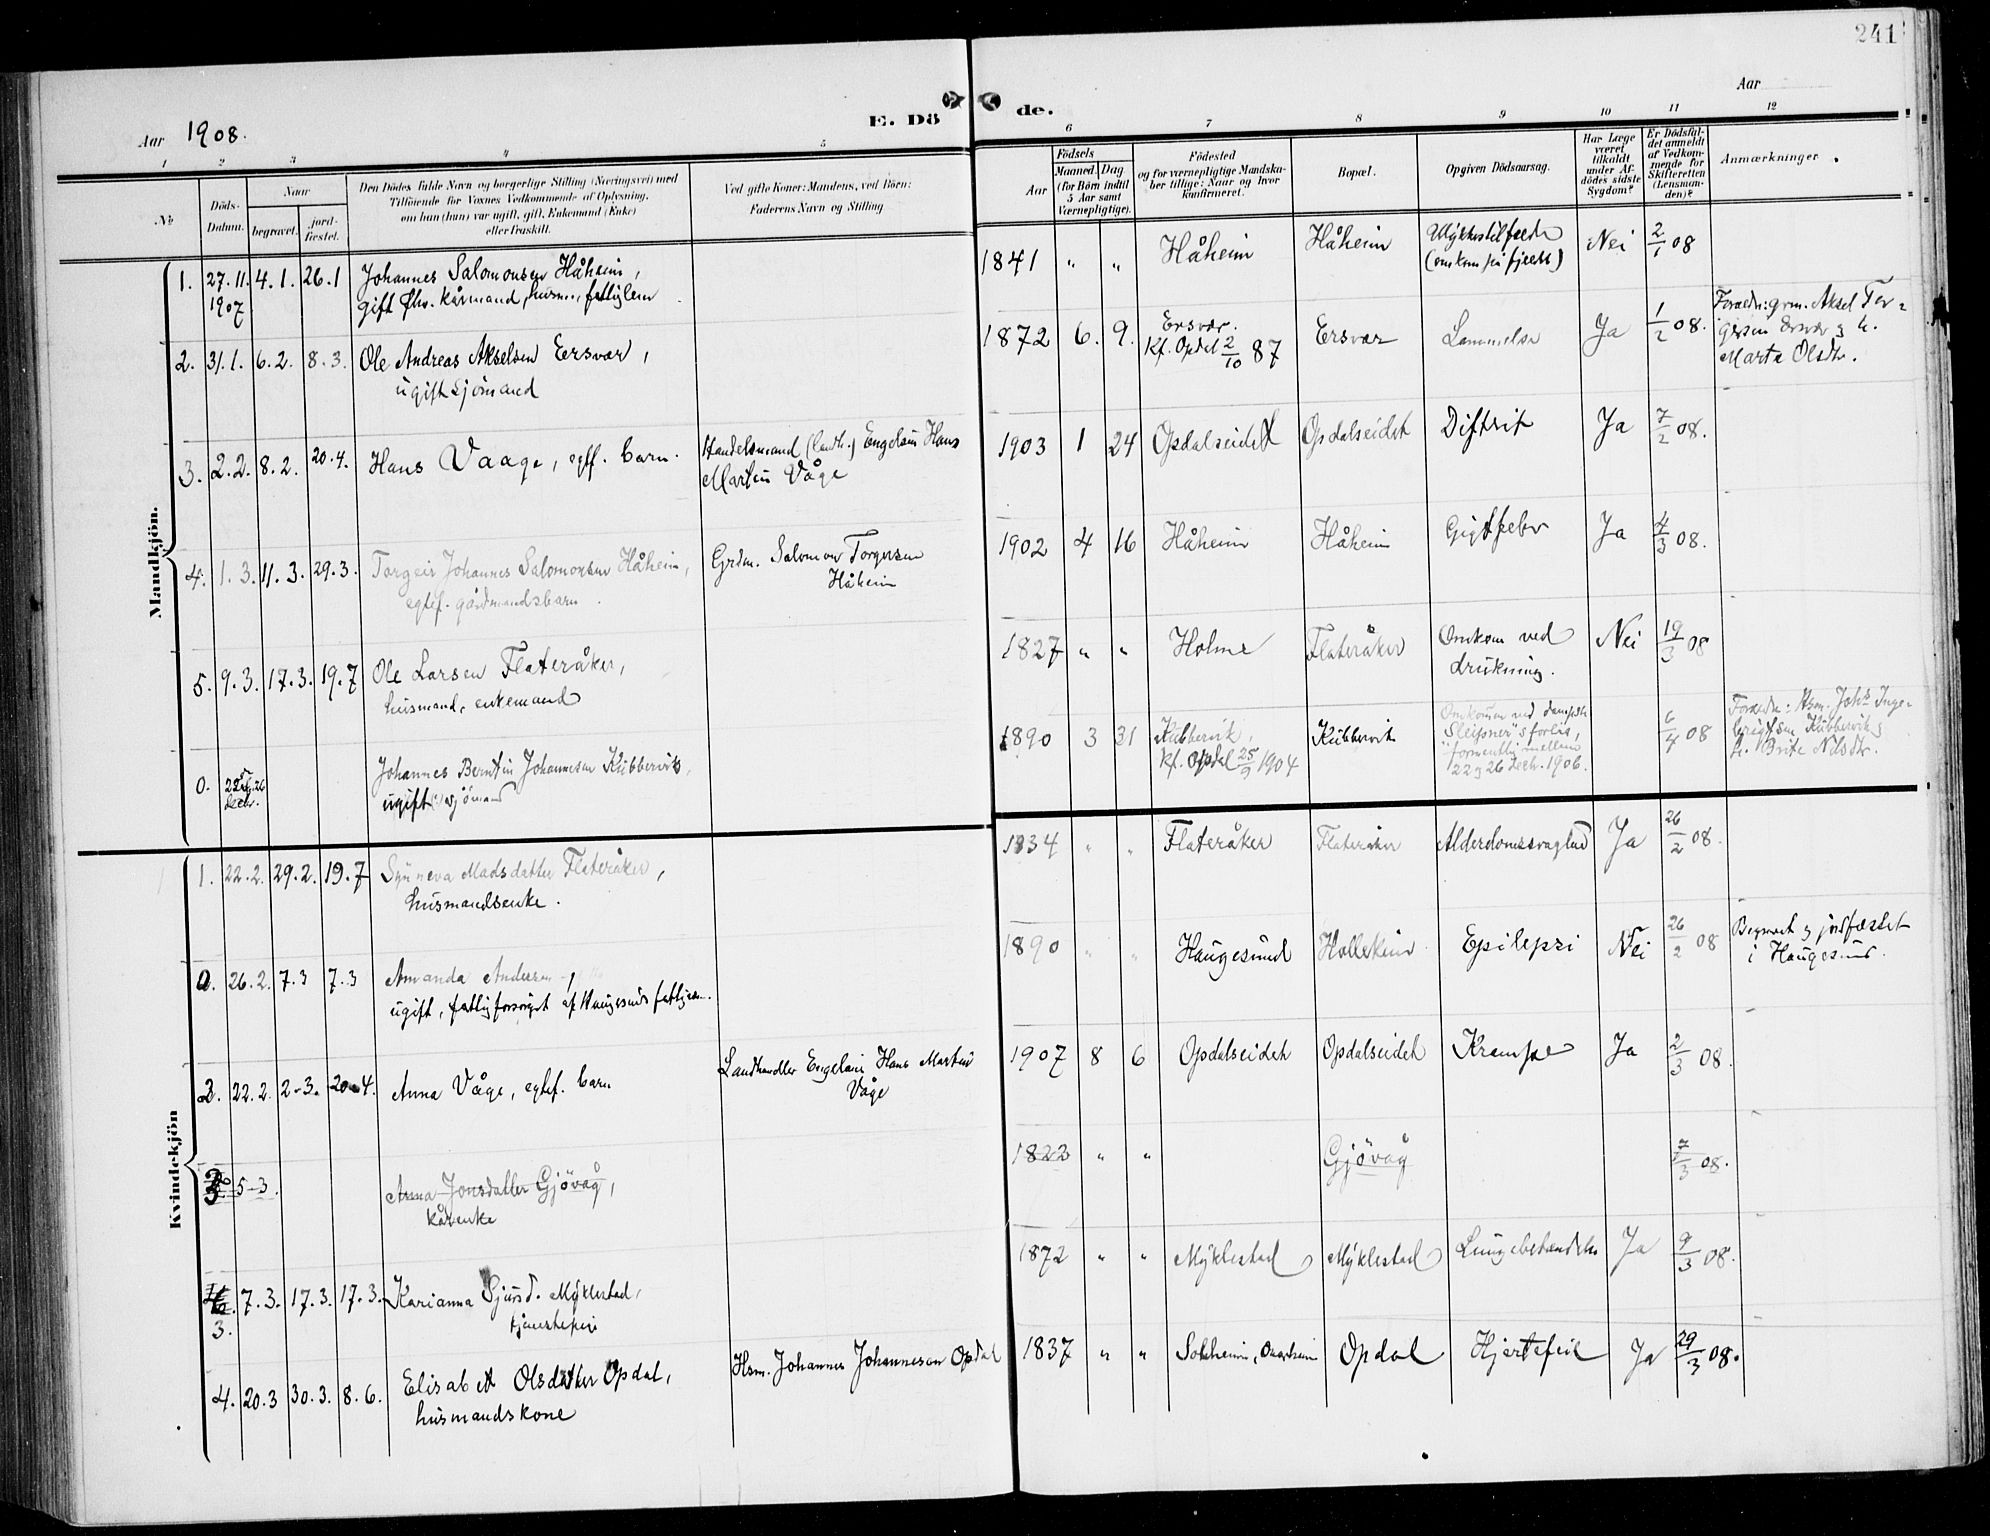 241
Aar 1908.
E. Dö de.
Aar
1 2 3 4 5 6 7 8 9 10 11 12
No
Döds-
Datum.
Naar
begravet.
jord-
fæstet.
Den Dödes fulde Navn og borgerlige Stilling (Næringsvei) med
Tilföiende for Voxnes Vedkommende af Oplysning,
om han (hun) var ugift, gift, Enkemand (Enke)
eller fraskilt.
Ved gifte Koner: Mandens, ved Börn:
Faderens Navn og Stilling
Födsels
Aar
Maaned. Dag
(for Börn indtil
5 Aar samt
Værnepligtige).
Födested
og for værnepligtige Mandska-
ber tillige: Naar og hvor
konfirmeret.
Bopæl.
Opgiven Dödsaarsag.
Har Læge
været
tilkaldt
under Af-
dödes sidste
Sygdom?
Er Dödsfal-
det anmeldt
af Vedkom-
mende for
Skifteretten
(Lensman-
den)?
Anmærkninger.
Mandkjön.
1. 27.11. 4.1. 26.1 Johannes Salomonsen Håheim, 1841 " " Håheim Håheim Ulykkestilfælde Nei 2/1 08
1907 gift fhv. kårmand, husm., fattiglem (omkom på fjeldet)
2. 31.1. 6.2. 8.3. Ole Andreas Akselsen Ersvær, 1872 6. 9. Ersvær. Ersvær Lammelse Ja 1/2 08. Forældr: grm. Aksel Tor-
ugift sjömand kf. Opdal 2/10 87 gersen Ersvær og h.
Marta Olsdtr.
3. 2.2. 8.2. 20.4. Hans Vaage, egtf. barn. Handelsmand (landh.) Engelsin Hans 1903 1 24 Opdalseidet Opdalseidet Diftrit Ja 7/2 08.
Martin Våge
4. 1.3. 11.3. 29.3. Torgeir Johannes Salomonsen Håheim, Grdm. Salomon Torgersen 1902 4 16 Håheim Håheim Gigtfeber Ja 4/3 08.
egtef. gårdmandsbarn. Håheim
5. 9.3. 17.3. 19.7 Ole Larsen Flateråker, 1827 " " Holme Flateråker Omkom ved Nei 19/3 08
husmand, enkemand drukning.
0. 22 26 Johannes Berntin Johannesen Kubbervik, 1890 3 31 Kubbervik, Kubbervik Omkommen ved dampsk. 6/4 08 Forældr: Hsm. Johs Inge-
decb. ugift sjömand kf. Opdal 25/9 1904 "Sleipner"s forlis, brigtsen Kubbervik og
formentlig mellem h. Brite Nilsdtr.
22 og 26 decb. 1906.
Kvindekjön
1. 22.2. 29.2. 19.7 Synneva Madsdatter Flateråker, 1834 " " Flateråker Flateråker Alderdomssvaghed Ja 26/2 08.
husmandsenke.
0. 26.2. 7.3 7.3 Amanda Andersen, 1890 " " Haugesund Epilepsi Nei 26/2 08 Begravet og jordfæstet
ugift, fattigforsörget af Haugesunds fattigvæsen. i Haugesund.
2. 22.2. 2-3. 20-4. Anna Våge, egtef. barn Landhandler Engelsin Hans Martin 1907 8 6 Opdalseidet Opdalseidet Krampe Ja 2/3 08.
Våge
3 5-3. Anna Jonsdatter Gjövåg, 1823 " " Gjövåg 7/3 08.
kårenke
7.3. 17.3. 17.3. Karianna Sjursd. Myklestad, 1872 " " Myklestad Myklestad Lungebetændelse Ja 9/3 08.
3. tjenestepige
4. 20.3 30.3. 8.6. Elisabet Olsdatter Opdal, Hsm. Johannes Johannesen Opdal 1837 " " Solheim, Opdal Hjertefeil Ja 29/3 08.
husmandskone